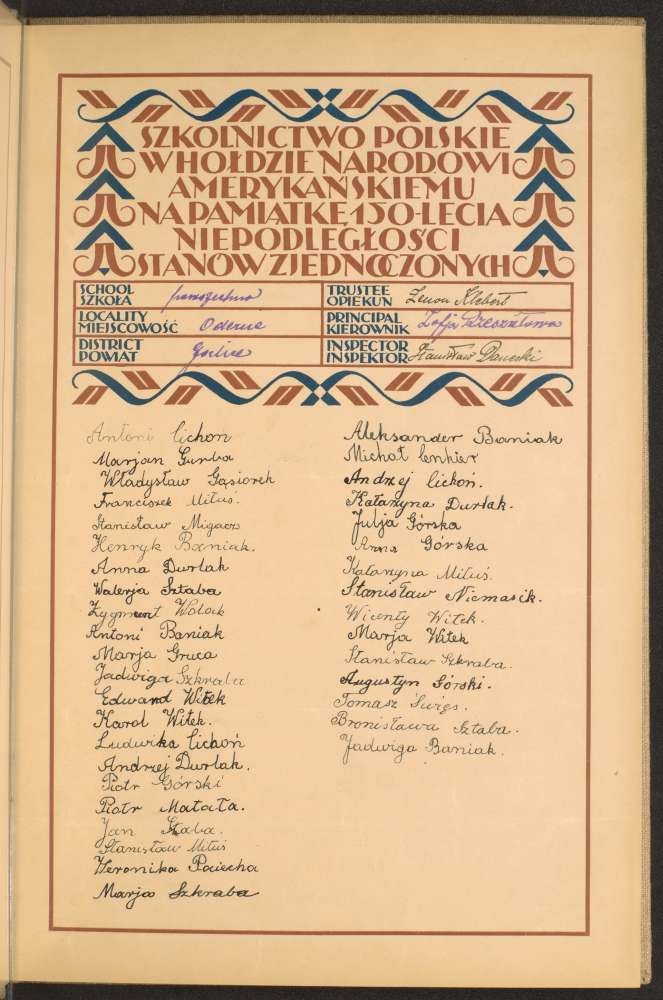 SZKOLNICTWO POLSKIE
W HOŁDZIE NARODOWI
AMERYKAŃSKIEMU
NA PAMIĄTKĘ 150-LECIA
NIEPODLEGŁOŚCI
STANÓW ZJEDNOCZONYCH
SCHOOL
SZKOŁA
LOCALITY
MIEJSCOWOŚĆ Oderne
DISTRICT
POWIAT Gorlice
TRUSTEE
OPIEKUN Zenon Klebert
PRINCIPAL
KIEROWNIK Zofja
INSPECTOR
INSPEKTOR Stanisław
Antoni Cichoń
Marjan Gurba
Władysław Gąsiorek
Franciszek Mituś.
Stanisław Migacz
Henryk Baniak.
Anna Durlak
Walerja Sztaba
Zygmunt Wolak
Antoni Baniak
Marja Gruca
Jadwiga Szkraba
Edward Witek
Karol Witek.
Ludwika Cichoń
Andrzej Durlak.
Piotr Górski
Piotr Matała.
Jan Sztaba.
Stanisław Mituś
Weronika Paciecha
Marja Szkraba
Aleksander Baniak
Michał
Andrzej Cichoń.
Katarzyna Durlak.
Julja Górska
Anna Górska
Katarzyna Mituś.
Stanisław Niemasik.
Wicenty Witek.
Marja Witek
Stanisław Szkraba.
Augustyn Górski.
Tomasz Święs.
Bronisława Sztaba.
Jadwiga Baniak.